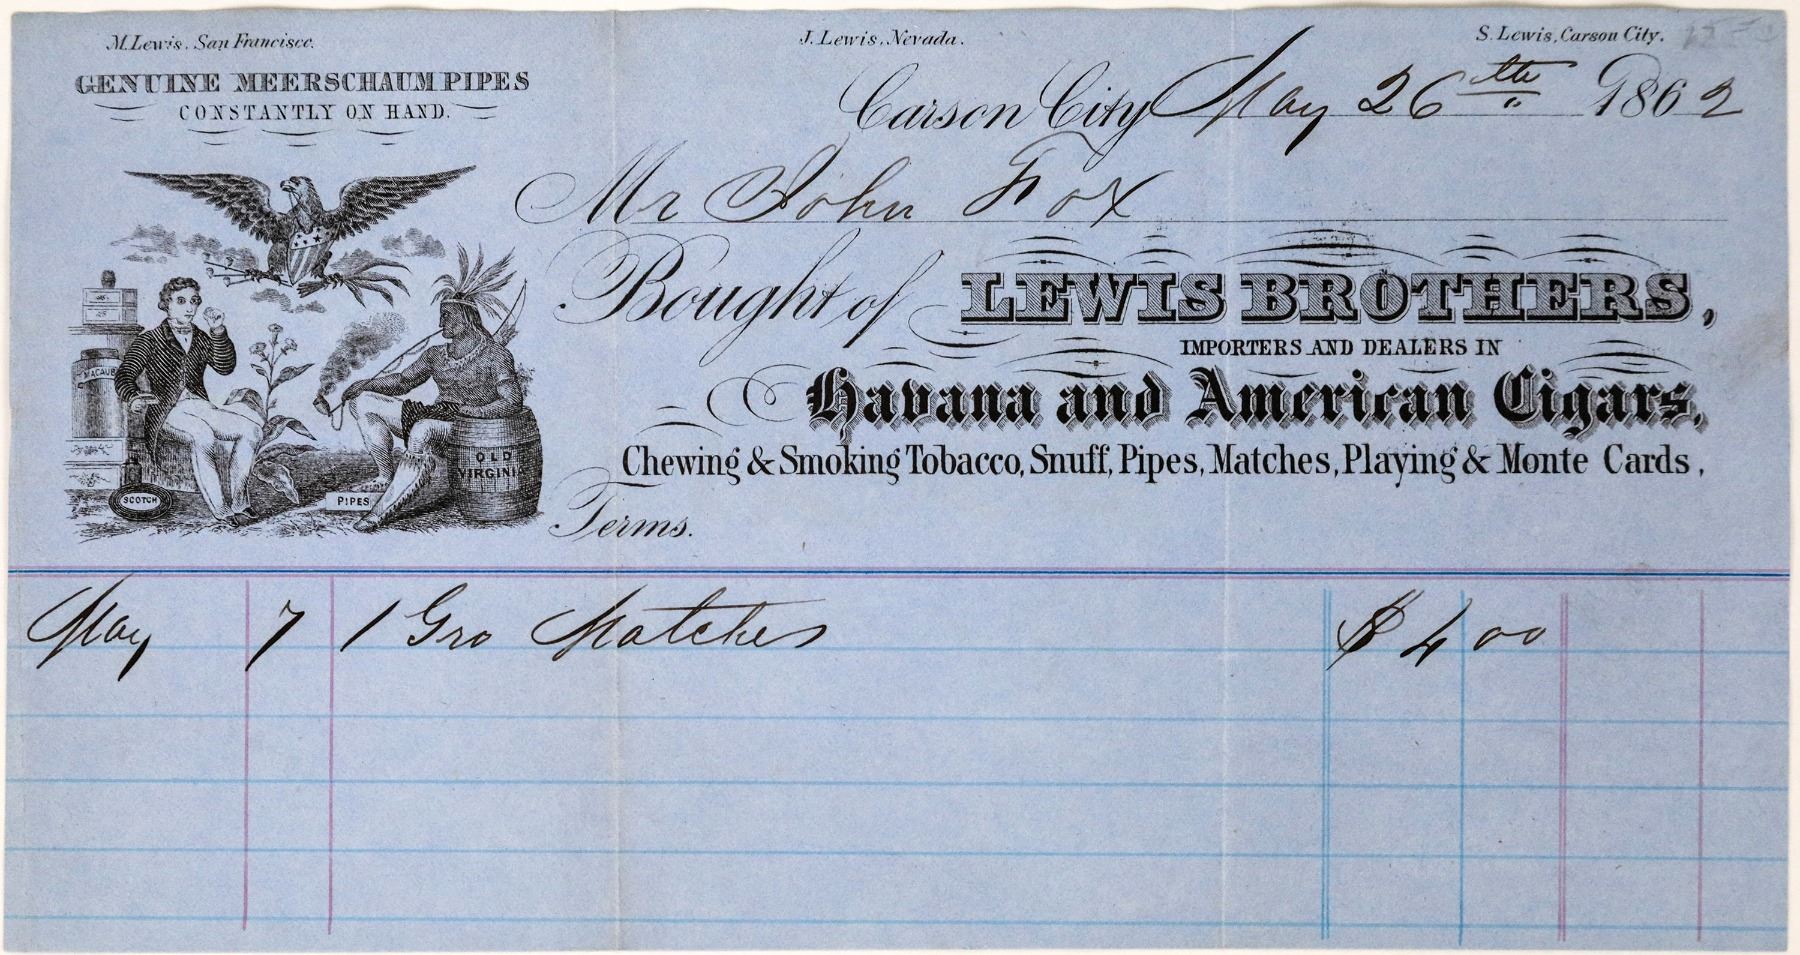 M. Lewis. San Francisco.
J. Lewis, Nevada.
S. Lewis, Carson City.
GENUINE MEERSCHAUM PIPES
CONSTANTLY ON HAND.
Carson City May 26th 1862
Mr John Fox
Bought of LEWIS BROTHERS,
IMPORTERS AND DEALERS IN
Havana and American Cigars,
Chewing & Smoking Tobacco, Snuff, Pipes, Matches, Playing & Monte Cards,
MACAUB
OLD
VIRGINIA
SCOTCH
PIPES
Terms.
May 7 1 Gro Matches $4 00